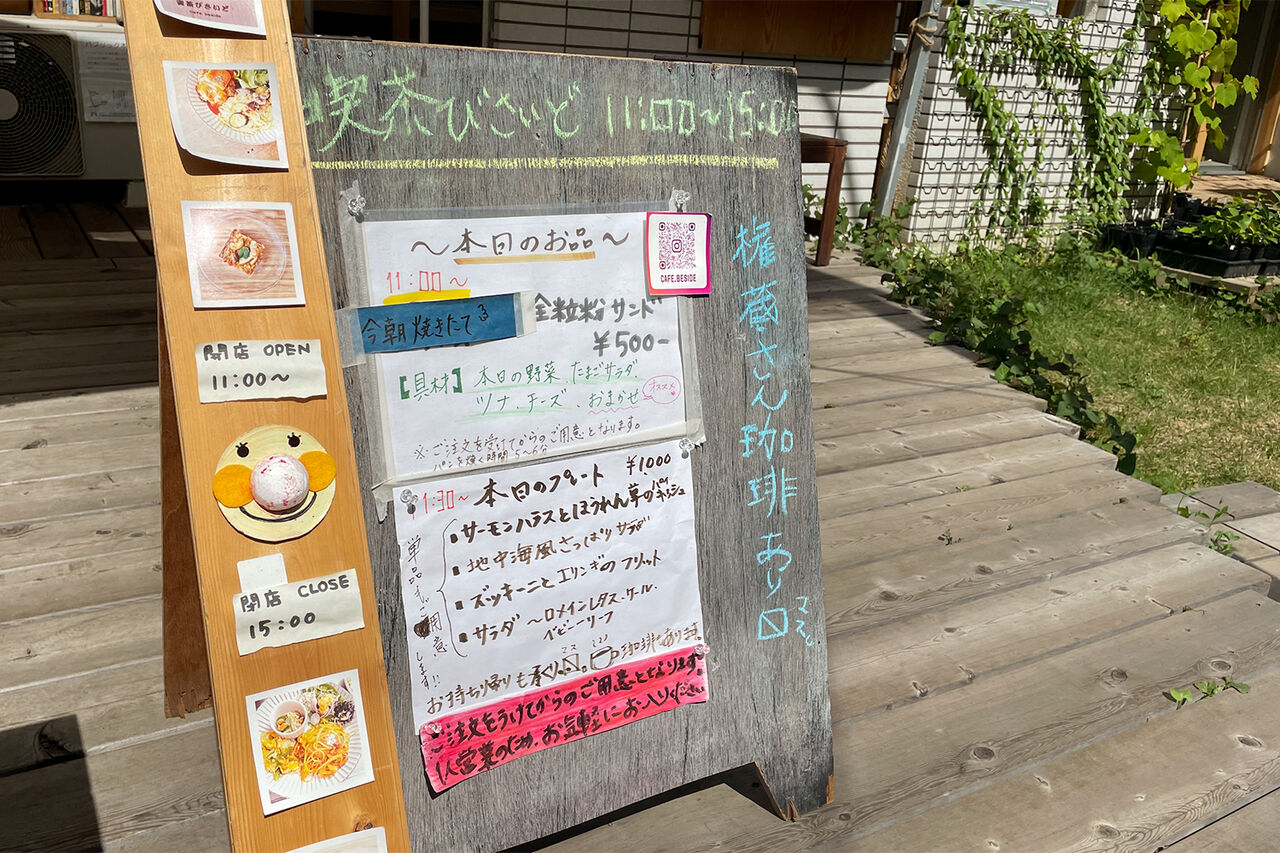 喫茶びさいど
喫茶びさいど 11:00～15:00
～本日のお品～
11:00～
今朝焼きたて
全粒粉サンド
¥500-
【具材】本日の野菜、たまごサラダ、
ツナ、チーズ、おまかせ
オススメ
※ご注文を受けてからのご用意となります。
パンを焼く時間 5～6分
CAFE.BESIDE
11:30～ 本日のプレート ¥1000
・サーモンハラスとほうれん草のパイ
・地中海風さっぱりサラダ
・ズッキーニとエリンギのフリット
・サラダ ～ロメインレタス・ケール・
ベビーリーフ
単品も
用意
します!!
お持ち帰りも承り〼。
珈琲もあります
ご注文をうけてからのご用意となります。
1人営業のため、お気軽にお入りください
権蔵さん珈琲あり〼
マス
閉店 OPEN
11:00～
閉店 CLOSE
15:00